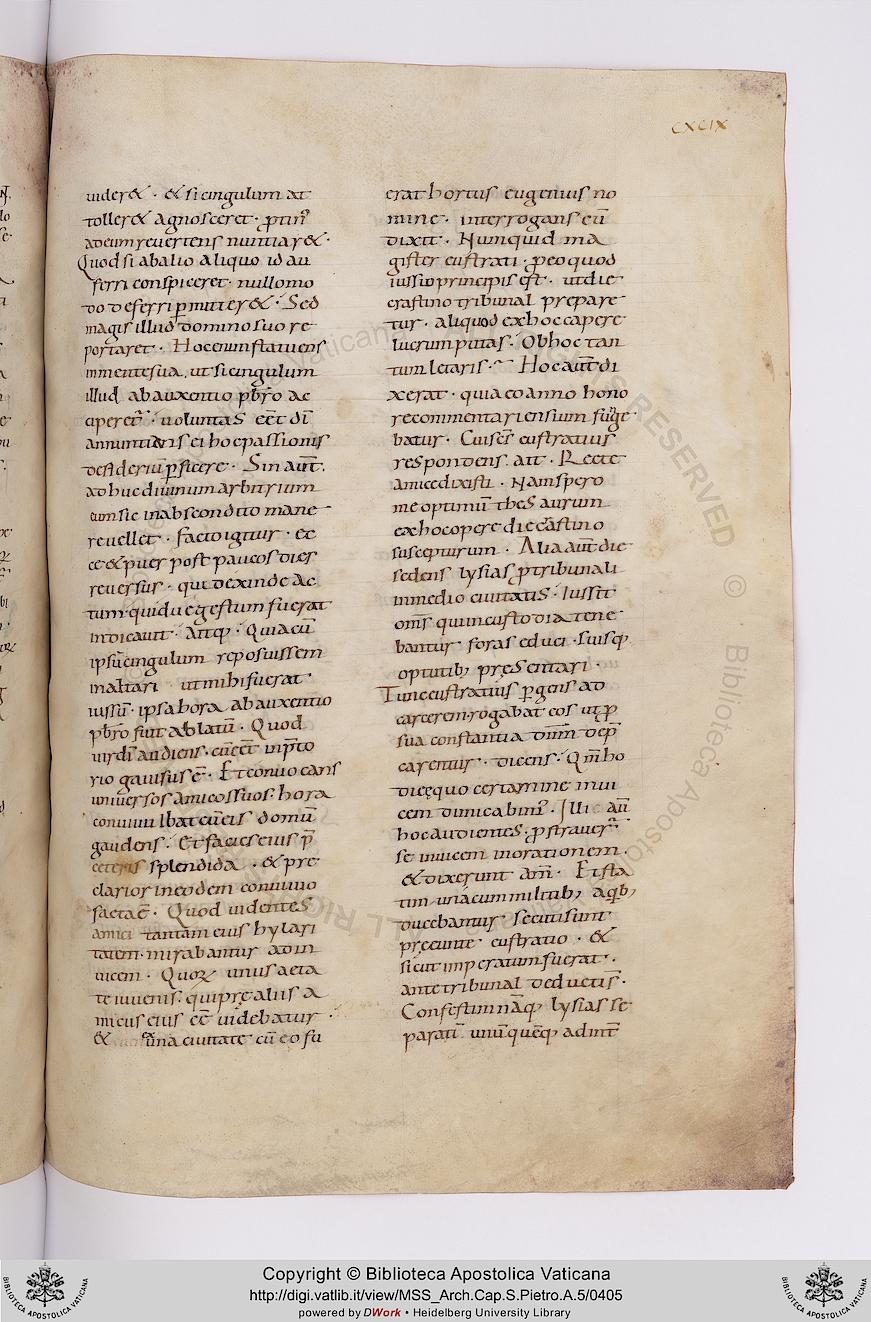 CXCIX
uider&. & si cingulum at
toller& agnosceret. ptin᷒
ad eum reuertens nuntiar&.
Quod si ab alio aliquo id au
ferri conspiceret. nullomo
do deferri pmitter&. Sed
magis illud domino suo re
portaret. Hoc enim statuens
in mente sua, ut si cingulum
illud ab auxentio pbr̄o ac
ciperet᷒. uoluntas eēt dī
annuntians ei hoc passionis
desiderium pficere. Sin aut̄.
adhuc diuinum arbitrium
eum sic in abscondito mane
re uellet. facto igitur. ec
ce & puer post paucos dies
reuersus. qui deinde ac
tum quidue gestum fuerat
indicauit. Atq;. Quia cū
ipsū cingulum reposuissem
in altari ut mihi fuerat
iussū. ipsa hora ab auxentio
pbr̄o fuit ablatū. Quod
uir dī audiens. cū eēt in p̄to
rio gauisus ē. Et conuocans
uniuersos amicos suos. hora
conuiuii ibat cū eis domū
gaudens. Et facies eius p̄
ceteris splendida. & pre
clarior in eodem conuiuio
facta ē. Quod uidentes
amici tantam eius hylari
tatem. mirabantur ad in
uicem. Quoꝝ unus aeta
te iuuenis. qui pre aliis a
micus eius eē uidebatur.
& una ciuitate cū eo fu
erat hortus eugenius no
mine. interrogans eū
dixit. Numquid ma
gister eustrati. p eo quod
iussio principis est. ut die
crastino tribunal prepare
tur. aliquod ex hoc capere
lucrum putas. Ob hoc tan
tum letaris. Hoc aūt di
xerat. quia eo anno hono
re commentariensium funge
batur. Cui scs̄ eustratius
respondens. ait. Recte
amice dixisti. Nam spero
me optimū thes aurum
ex hoc opere die crāstino
suscepturum. Alia aūt die
sedens lysias p tribunali
in medio ciuitatis. Iussit
oms̄ qui in custodia tene
bantur foras educi. suisq;
optutib; presentari.
Tunc eustratius pgens ad
carcerem rogabat eos ut p̄
sua constantia dn̄m dep̄
carentur. dicens. Qm̄ ho
die equo certamine inui
cem dimicabim᷒. Illi aūt
hoc audientes. pstrauer᷒
se inuicem in orationem.
& dixerunt am̄. Et sta
tim unā cum militib; a qb;
ducebantur. secuti sunt
preeunte eustratio. &
sicut imperatum fuerat.
ante tribunal deductis.
Confestim nāq; lysias se
paratī unū quēq; admit̄
Copyright © Biblioteca Apostolica Vaticana
http://digi.vatlib.it/view/MSS_Arch.Cap.S.Pietro.A.5/0405
powered by DWork • Heidelberg University Library